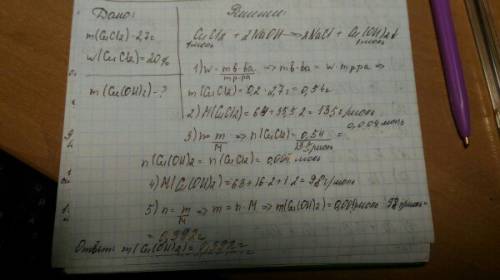 Дано:
m(CuCl2)=27г
w(CuCl2)=20%
m(Cu(OH)2)-?
Решение
CuCl2 + 2NaOH → 2NaCl + Cu(OH)2↓
1моль 1моль
1) w = mв-ва/mр-ра ⇒ mв-ва = w·mр-ра ⇒
m(CuCl2)=0,2·27г=0,54г
2) M(CuCl2)=64+35,5·2=135г/моль
3) n=m/M ⇒ n(CuCl2)=0,54/135= 0,004 моль
n(Cu(OH)2=n(CuCl2)=0,004 моль
4) M(Cu(OH)2)=64+16·2+1·2=98г/моль
5) n=m/M ⇒ m=n·M ⇒ m(Cu(OH)2)=0,004моль·98г/моль=
=0,392г
Ответ: m(Cu(OH)2)=0,392г